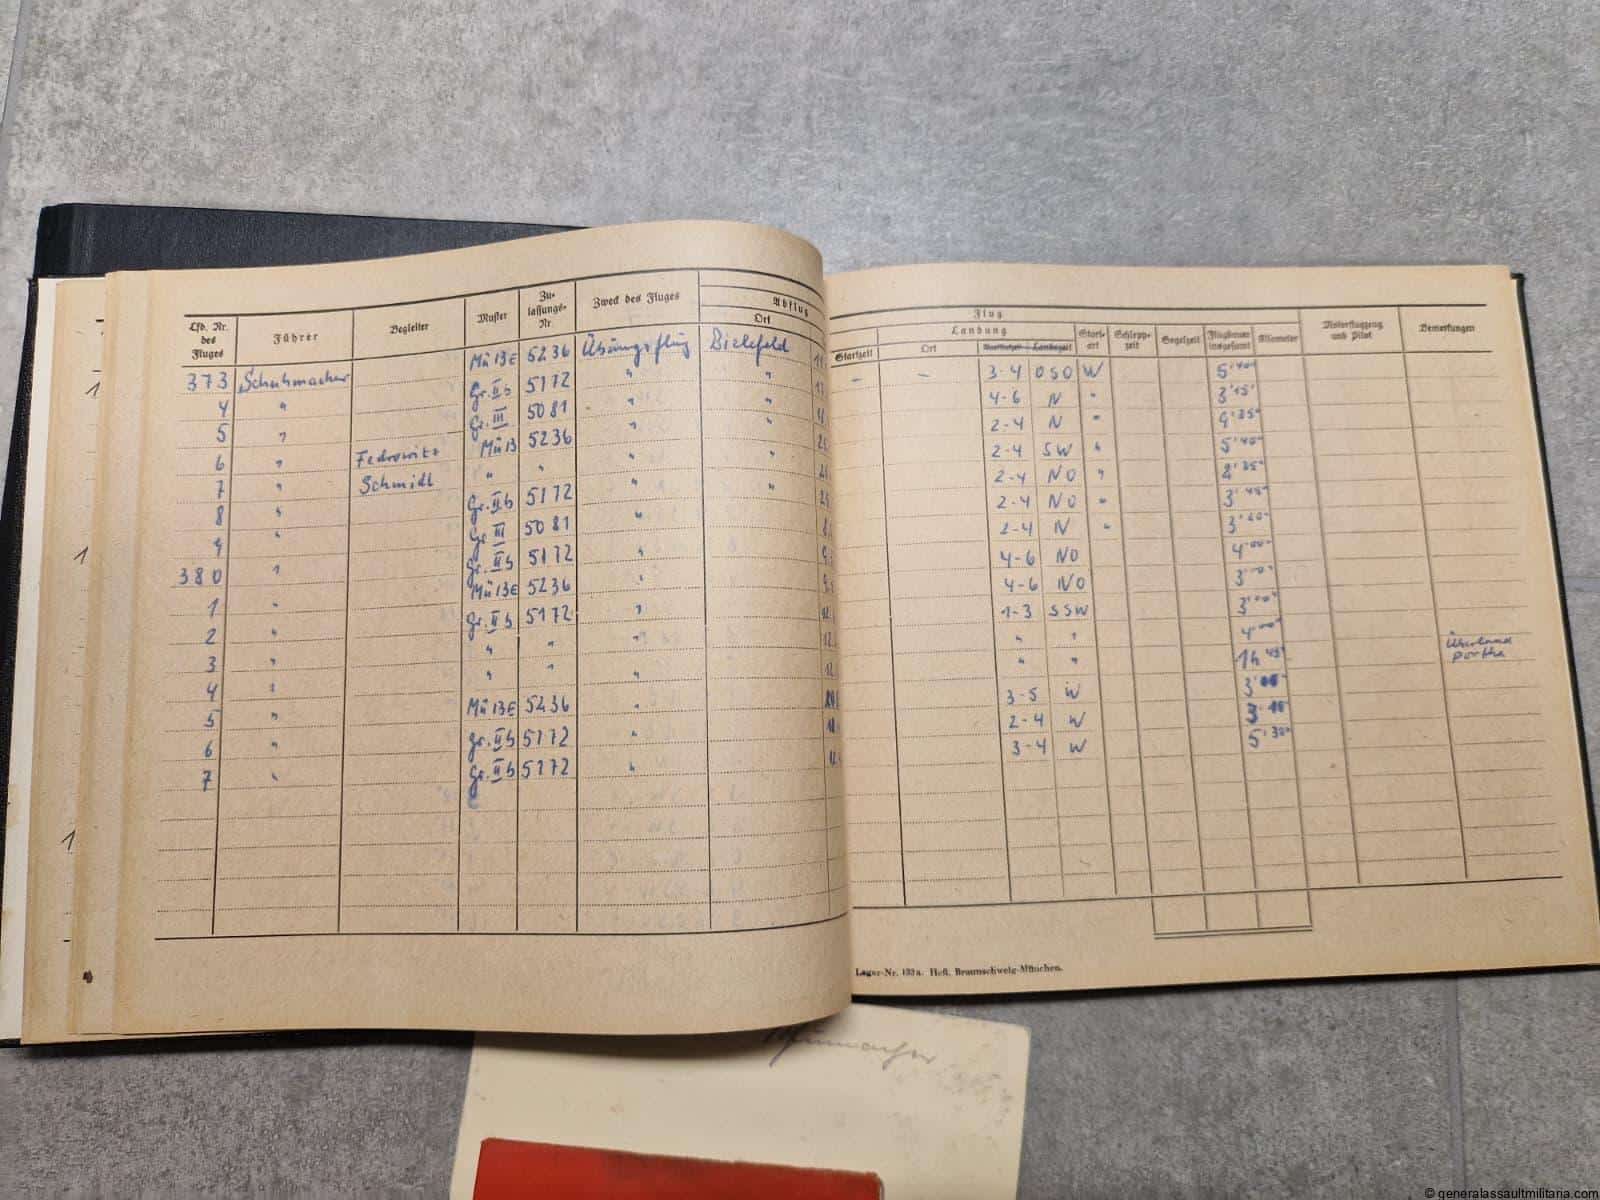 Lfd. Nr. des Fluges Führer Begleiter Muster Zu-lassungs-Nr. Zweck des Fluges Abflug Ort
373 Schuhmacher Mü 13E 5236 Übungsflug Bielefeld
4 " Gr. II b 5172 " "
5 " Gr. III 5081 " "
6 " Fedrowitz Mü 13 5236 " "
7 " Schmidt " " " "
8 " Gr. II b 5172 " "
9 " Gr. III 5081 "
380 " Gr. II b 5172 "
1 " Mü 13E 5236 "
2 " Gr. II b 5172 "
3 " " " "
4 " " " "
5 " Mü 13E 5236 "
6 " Gr. II b 5172 "
7 " Gr. II b 5172 "
Flug
Landung
Startzeit Ort Start-art Schlepp-zeit Segelzeit Flugdauer insgesamt Kilometer Motorflugzeug und Pilot Bemerkungen
- - 3-4 OSO W 5'40"
4-6 N " 3'45"
2-4 N "
2-4 SW " 5'40"
2-4 NO "
2-4 NO " 3'45"
2-4 N "
4-6 NO 4'00"
4-6 NO 3'
1-3 SSW 3'00"
" " 4'00"
" " 1h 45' Überland porta
3-5 W 3'
2-4 W 3'
3-4 W 5'30"
Lager-Nr. 133a. Heß, Braunschweig-München.
© generalassaultmilitaria.com